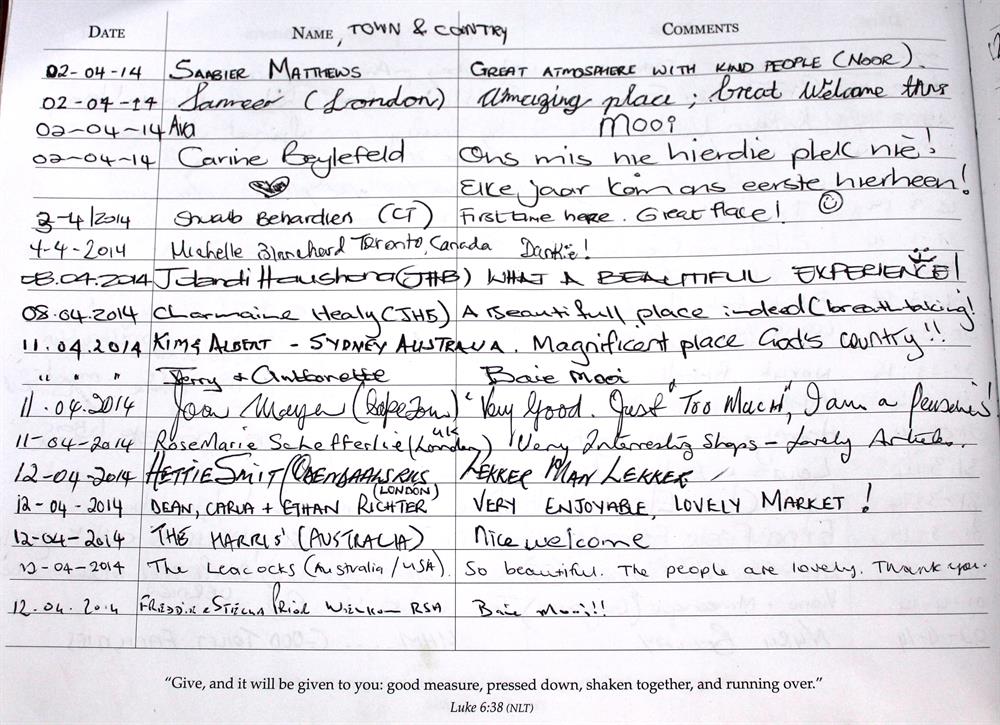 DATE NAME, TOWN & COUNTRY COMMENTS
02-04-14 SAABIER MATTHEWS GREAT ATMOSPHERE WITH KIND PEOPLE (NOOR).
02-04-14 Sameer (London) Amazing place; Great Welcome
02-04-14 Ava Mooi
02-04-14 Carine Beylefeld Ons mis nie hierdie plek nie!
Elke jaar kom ons eerste hierheen!
3-4/2014 Shuaib Behardien (CT) First time here. Great Place!
4-4-2014 Michelle Toronto, Canada Dankie!
08.04.2014 (JHB) WHAT A BEAUTIFUL EXPERIENCE!
08.04.2014 Charmaine Healy (JHB) A Beautifull place indeed (breathtaking!
11.04.2014 KIM & ALBERT - SYDNEY AUSTRALIA. Magnificent place God's country!!
" " " Terry & Antonette Baie Mooi
11.04.2014 Joan Mayer (Cape Town) "Very Good. Just "Too Much", I am a Pensioner
11-04-2014 RoseMarie (London) UK Very Interesting Shops - Lovely Articles.
12-04-2014 HETTIE SMIT LEKKER MAN LEKKER
12-04-2014 DEAN, CARLA + ETHAN RICHTER (LONDON) VERY ENJOYABLE, LOVELY MARKET!
12-04-2014 THE HARRIS' (AUSTRALIA) Nice welcome
12-04-2014 The Leacocks (Australia/USA). So beautiful. The people are lovely. Thank you.
12.04.2014 RSA Baie Mooi!!!
"Give, and it will be given to you: good measure, pressed down, shaken together, and running over."
Luke 6:38 (NLT)